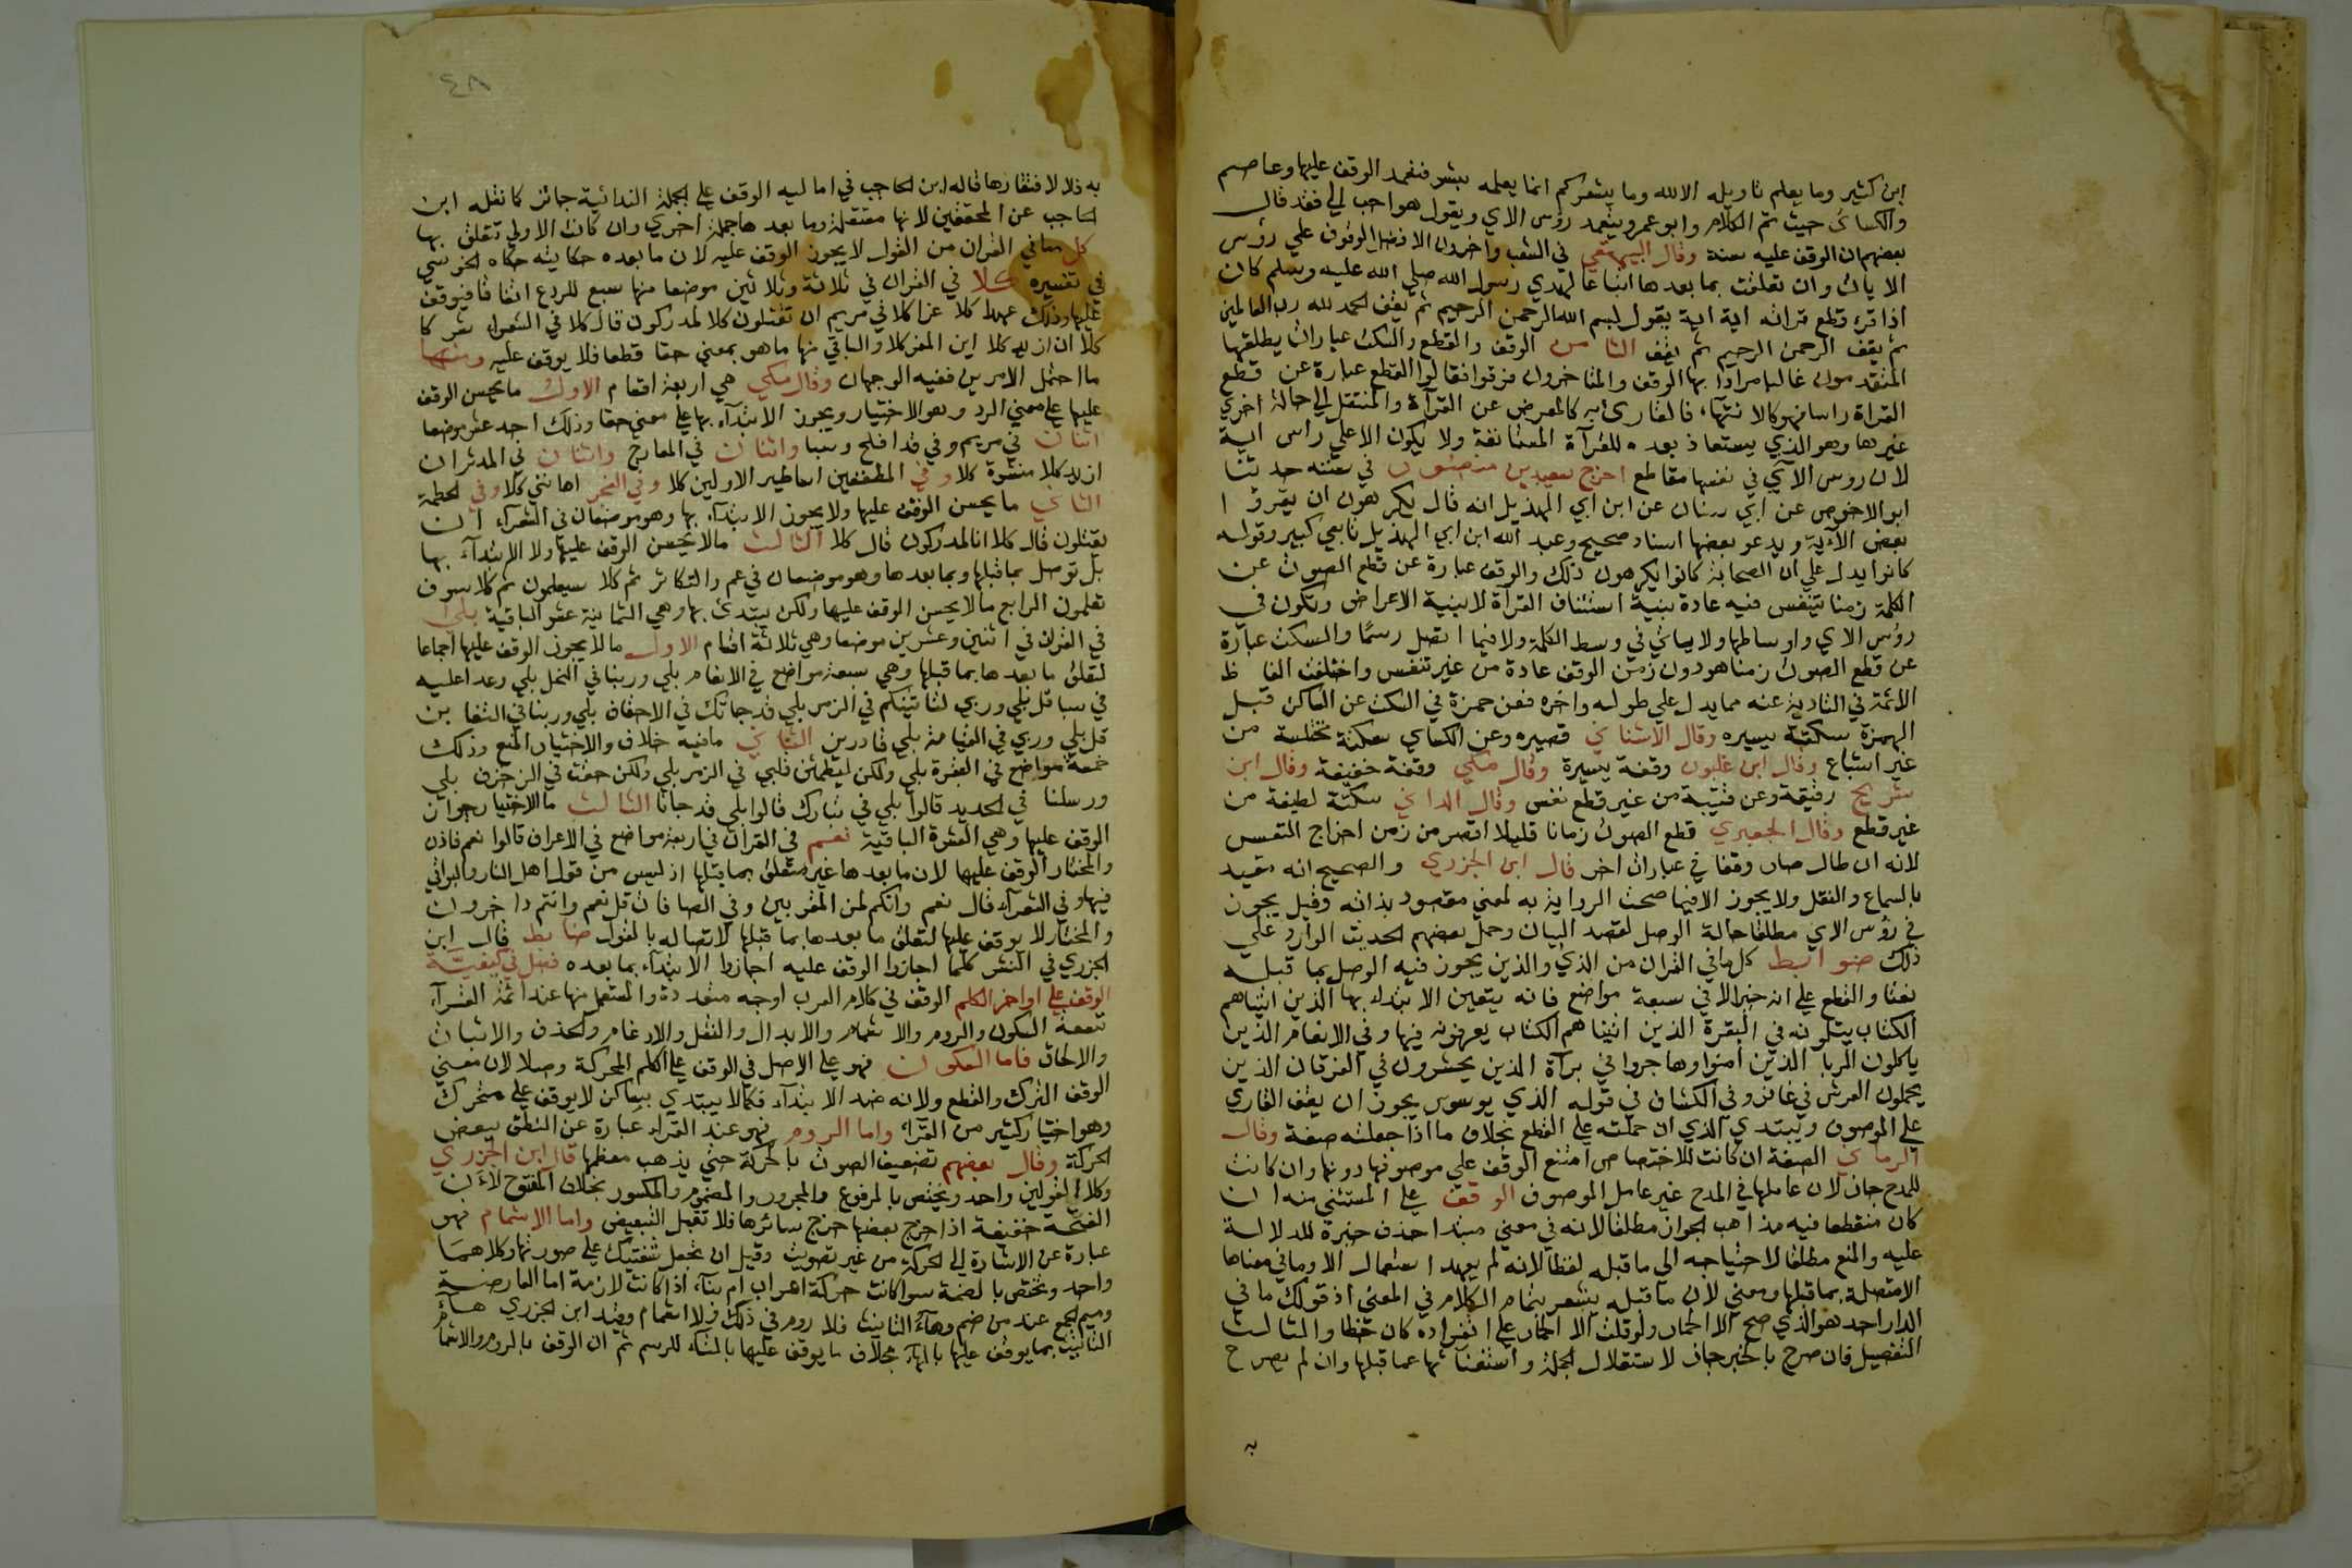 ابن كثير وما يعلم تاويله الا الله وما يشعركم انما يعلمه بشر فتعمد الوقف عليها وعاصم
والكسائى حيث تم الكلام وابو عمرو يتعمد رؤس الاي ويقول هو احب الي فقد قال
بعضهم ان الوقف عليه سنة وقال البيهقي في الشعب واخرون الافضل الوقوف علي رؤس
الايات وان تعلقت بما بعدها اتباعا لهدي رسول الله صلي الله عليه وسلم كان
اذا قرء قطع قراته اية اية يقول بسم الله الرحمن الرحيم ثم يقف الحمد لله رب العالمين
ثم يقف الرحمن الرحيم ثم يقف الثامن الوقف والقطع والسكت عبارات يطلقها
المتقدمون غالبا مرادا بها الوقف والمتاخرون فرقوا فقالوا القطع عبارة عن قطع
القراة راسا فهو كالانتهاء فالقارئ به كالمعرض عن القرآة والمنتقل الي حالة اخري
غيرها وهو الذي يستعاذ بعده للقرآة المستانفة ولا يكون الا علي راس اية
لان روس الآي في نفسها مقاطع اخرج سعيد بن منصور في سننه حدثنا
ابو الاخوص عن ابي سنان عن ابن ابي الهذيل انه قال يكرهون ان يقرؤا
بعض الآية ويدعو بعضها اسناد صحيح وعبد الله ابن ابي الهذيل تابعي كبير وقوله
كانوا يدل علي ان الصحابة كانوا يكرهون ذلك والوقف عبارة عن قطع الصوت عن
الكلمة زمنا يتنفس فيه عادة بنية استئناف القرآة لا بنية الاعراض ويكون في
رؤس الاي واوساطها ولا ياتي في وسط الكلمة ولا فيما اتصل رسمًا والسكت عبارة
عن قطع الصوت زمنا هو دون زمن الوقف عادة من غير تنفس واختلفت الفاظ
الائمة في التادية عنه مما يدل علي طوله واخره فعن حمزة في السكت عن الساكن قبل
الهمزة سكتة يسيره وقال الاشناني قصيره وعن الكساي سكتة مختلسة من
غير اشباع وقال ابن غلبون وقفة يسيرة وقال مكي وقفة خفيفة وقال ابن
شريح رفيقة وعن قتيبة من غير قطع نفس وقال الداني سكتة لطيفة من
غير قطع وقال الجعبري قطع الصوت زمانا قليلا اقصر من زمن اخراج النفس
لانه ان طال صار وقفا في عبارات اخر قال ابن الجزري والصحيح انه مقيد
بالسماع والنقل ولا يجوز الا فيما صحت الرواية به لمعني مقصود بذاته وقيل يجوز
في رؤس الاي مطلقا حالة الوصل لقصد البيان وحمل بعضهم الحديث الوارد علي
ذلك ضوابط كل ما في القران من الذي والذين يجوز فيه الوصل بما قبله
نعتا والقطع علي انه خبر الا في سبعة مواضع فانه يتعين الابتداء بها الذين اتيناهم
الكتاب يتلونه في البقرة الذين اتيناهم الكتاب يعرفونه فيها وفي الانعام الذين
ياكلون الربا الذين امنوا وهاجروا في برآة الذين يحشرون في الفرقان الذين
يحملون العرش في غافر وفي الكشاف في قوله الذي يوسوس يجوز ان يقف القاري
علي الموصوف ويبتدي الذي ان حملته علي القطع بخلاف ما اذا جعلته صفة وقال
الرماني الصفة ان كانت للاختصاص امتنع الوقف علي موصوفها دونها وان كانت
للمدح جاز لان عاملها في المدح غير عامل الموصوف الوقف علي المستثني منه ان
كان منقطعا فيه مذاهب الجواز مطلقا لانه في معني مبتدا حذف خبره للدلالة
عليه والمنع مطلقا لاحتياجه الي ما قبله لفظا لانه لم يعهد استعمال الا وما في معناها
الا متصلة بما قبلها ومعني لان ما قبله يشعر بتمام الكلام في المعني اذ قولك ما في
الدار احد هو الذي صحح الا الحمار ولو قلت الا الحمار علي انفراده كان خطا والثالث
التفصيل فان صرح بالخبر جاز لاستقلال الجملة واستغنائها عما قبلها وان لم يصرح
به
٤٨
به فلا لافتقارها قاله ابن الحاجب في اماليه الوقف علي الجملة الندائية جائز كما نقله ابن
الحاجب عن المحققين لانها مستقلة وما بعدها جملة اخري وان كانت الاولي تتعلق بها
كل ما في القران من القول لا يجوز الوقف عليه لان ما بعده حكايته حكاه الجويني
في تفسيره كلا في القران في ثلاثة وثلاثين موضعا منها سبع للردع اتفاقا فيوقف
عليها وذلك عهدا كلا عزا كلا في مريم ان تقتلون كلا لمدركون قال كلا في الشعراء شركا
كلا ان ازيد كلا اين المفر كلا والباقي منها ما هو بمعني حقا قطعا فلا يوقف عليه ومنها
ما احتمل الامرين ففيه الوجهان وقال مكي هي اربعة اقسام الاول ما يحسن الوقف
عليها علي معني الرد وهو الاختيار ويجوز الابتدآء بها علي معني حقا وذلك احد عشر موضعا
اثنان في مريم وفي قد افلح وسبا واثنان في المعارج واثنان في المدثر ان
ازيد كلا منشرة كلا وفي المطففين اساطير الاولين كلا وفي الفجر اهانني كلا وفي الحطمة
الثاني ما يحسن الوقف عليها ولا يجوز الابتدآء بها وهو موضعان في الشعرآء ان
يقتلون قال كلا انا لمدركون قال كلا الثالث ما لا يحسن الوقف عليها ولا الابتدآء بها
بل توصل بما قبلها وبما بعدها وهو موضعان في عم والتكاثر ثم كلا سيعلمون ثم كلا سوف
تعلمون الرابع ما لا يحسن الوقف عليها ولكن يبتدئ بها وهي الثمانية عشر الباقية بلي
في القران في اثنين وعشرين موضعا وهي ثلاثة اقسام الاول ما لا يجوز الوقف عليها اجماعا
لتعلق ما بعدها بما قبلها وهي سبعة مواضع في الانعام بلي وربنا في النحل بلي وعدا عليه
في سبا قل بلي وربي لتاتينكم في الزمر بلي قد جاتك في الاحقاف بلي وربنا في التغابن
قل بلي وربي في القيامة بلي قادرين الثاني ما فيه خلاف والاختيار المنع وذلك
خمسة مواضع في البقرة بلي ولكن ليطمئن قلبي في الزمر بلي ولكن حقت في الزخرف بلي
ورسلنا في الحديد قالوا بلي في تبارك قالوا بلي قد جانا الثالث ما الاختيار جواز
الوقف عليها وهي العشرة الباقية نعم في القران في اربعة مواضع في الاعراف قالوا نعم فاذن
والمختار الوقف عليها لان ما بعدها غير متعلق بما قبلها اذ ليس من قول اهل النار والبواقي
فيها وفي الشعرآء قال نعم وانكم لمن المقربين وفي الصافات قل نعم وانتم داخرون
والمختار لا يوقف عليها لتعلق ما بعدها بما قبلها لاتصاله بالقول ضابط قال ابن
الجزري في النشر كلما اجازوا الوقف عليه اجازوا الابتدآء بما بعده فصل في كيفية
الوقف علي اواخر الكلم الوقف في كلام العرب اوجه متعددة والمستعمل منها عند ائمة القرآء
تسعة السكون والروم والاشمام والابدال والنقل والادغام والحذف والاثبات
والالحاق فاما السكون فهو علي الاصل في الوقف علي الكلم المحركة وصلا لان معني
الوقف الترك والقطع ولانه ضد الابتدآء فكما لا يبتدي بساكن لا يوقف علي متحرك
وهو اختيار كثير من القرآء واما الروم فهو عند القرآء عبارة عن النطق ببعض
الحركة وقال بعضهم تضعيف الصوت بالحركة حتي يذهب معظمها قال ابن الجزري
وكلا القولين واحد ويختص بالمرفوع والمجرور والمضموم والمكسور بخلاف المفتوح لان
الفتحة خفيفة اذا خرج بعضها خرج سائرها فلا تقبل التبعيض واما الاشمام فهو
عبارة عن الاشارة الي الحركة من غير تصويت وقيل ان تجعل شفتيك علي صورتها وكلاهما
واحد وتختص بالضمة سوا كانت حركة اعراب ام بنآء اذا كانت لازمة اما العارضة
وميم الجمع عند من ضم وهآء التانيث فلا روم في ذلك ولا اشمام وقيد ابن الجزري هآء
التانيث بما يوقف عليها بالهآء بخلاف ما يوقف عليها بالتاء للرسم ثم ان الوقف بالروم والاشما